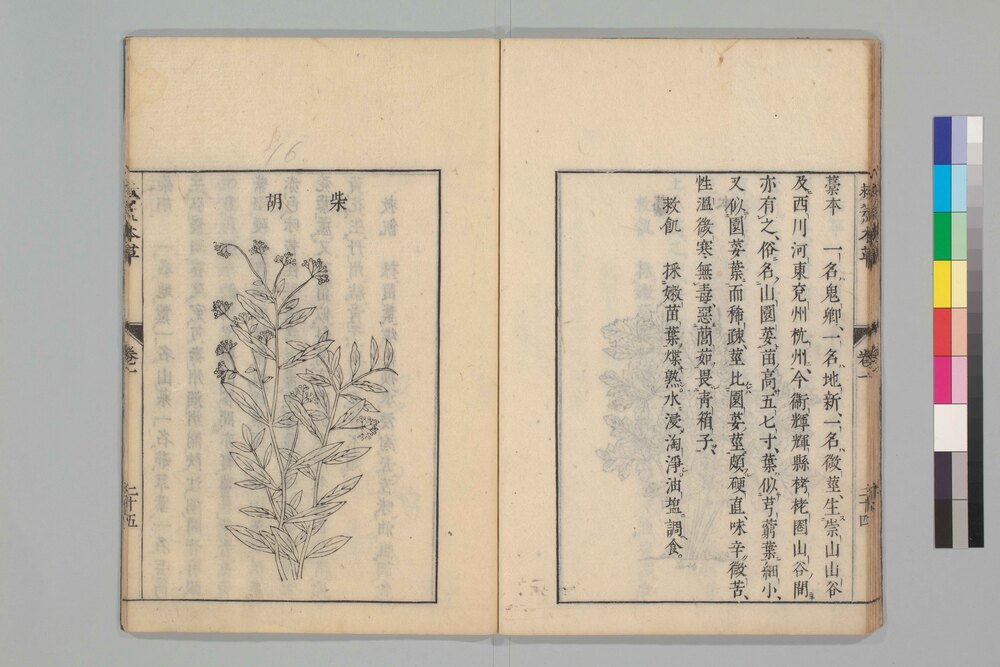 藁本 一名鬼卿、一名地新、一名微莖、生崇山山谷
及西川河東兗州杭州、今衞輝輝縣栲栳圏山谷間
亦有之、俗名山園荽、苗高五七寸、葉似芎藭葉細小、
又似園荽葉而稀疎、莖比園荽莖頗硬直、味辛微苦、
性溫微寒無毒、惡䕡茹畏青葙子、
救飢 採嫩苗葉煠熟、水浸淘淨、油塩調食。
柴胡
卷一
二十五